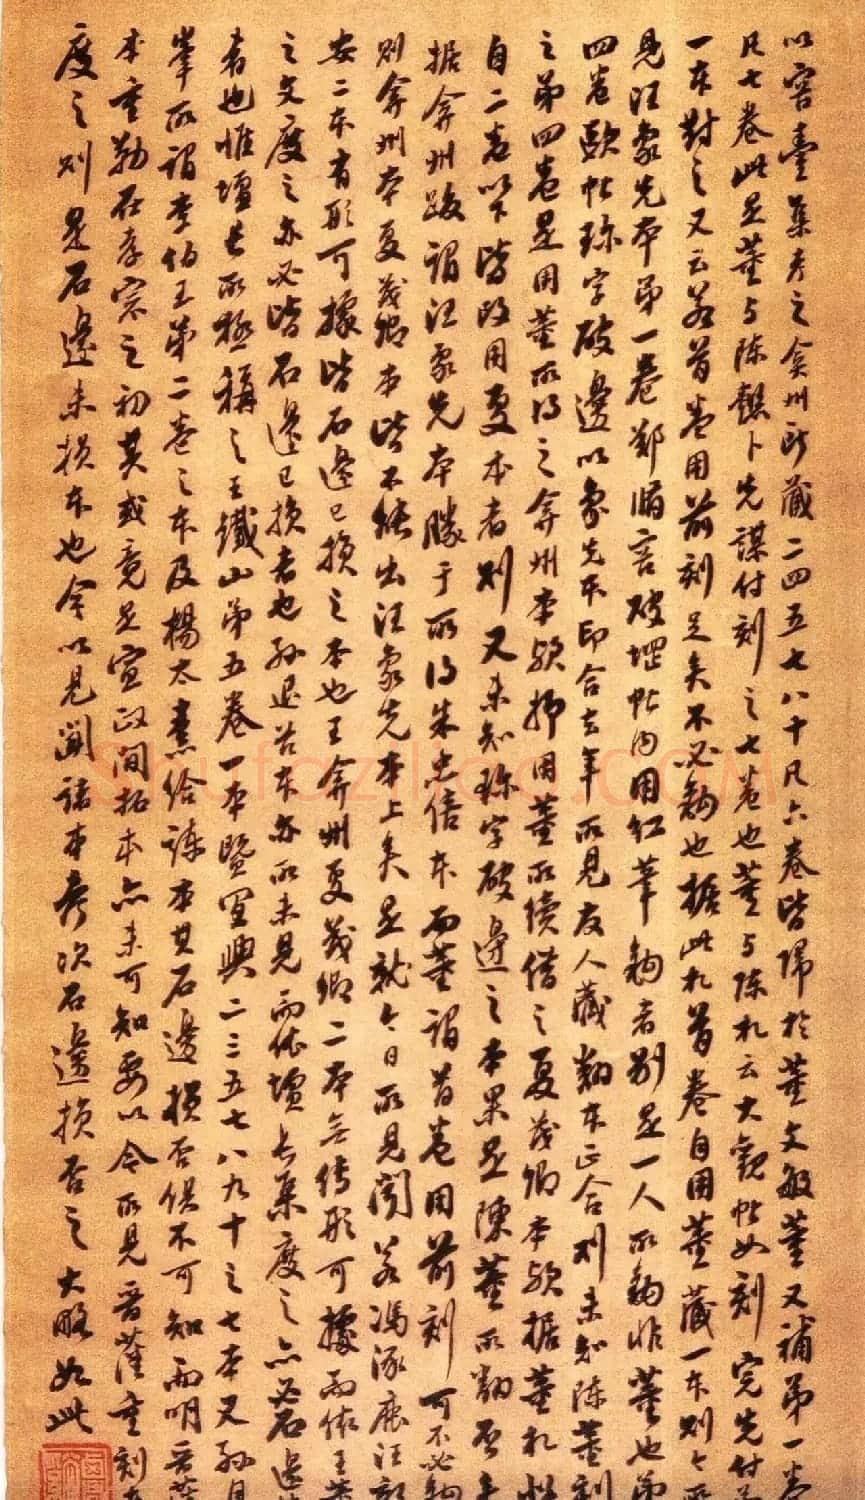 以容臺集考之弇州所藏二四五七八十凡六卷皆歸於董文敏董又補第一卷
凡七卷此是董与陳懿卜先謀付刻之七卷也董与陳札云大觀帖如刻完先付
一本對之又云若首卷用前刻足矣不必鉤也据此札首卷自用董藏一本則今所
見汪象先本第一卷鄒脩容破邊帖內用红筆鉤者別是一人所鉤非董也第
四卷歐帖琢字破邊以象先本印合去年所見友人藏翻本正合則未知陈董刻
之第四卷是用董所得之弇州本歟抑用董所續借之夏茂卿本歟据董札
自二卷以下皆改用夏本者則又未知琢字破邊之本果是陳董所翻否
据弇州跋謂汪象先本勝于所得朱忠僖本而董謂首卷用前刻可不必鉤
則弇州本夏茂卿本皆不能出汪象先本上矣是就今日所見聞若馮涿鹿汪
安二本有形可據皆石邊已损之本也王弇州夏茂卿二本无傳形可據而依王
之文度之亦必皆石邊已損者也孙退谷本亦所未見而依壇長集度之亦必石邊
者也惟壇長所極稱之王鐵山第五卷一本暨宜興二三五七八九十之七本又孙月
峯所謂李伯玉第二卷之本及楊太素给諫本其石邊損否俱不可知而明晉
本重勒在孝宗之初其或竟是宣政间拓本亦未可知要以今所見晋藩重刻
度之則是石邊未损本也今以見聞諸本考次石邊損否之大略如此